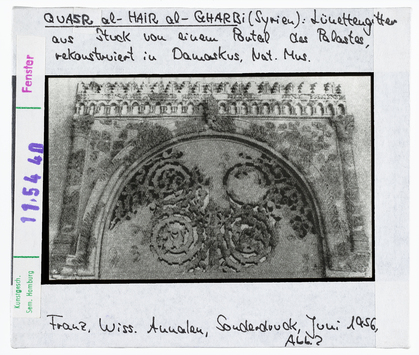 QUASR al-HAIR al-GHARBI (Syrien): Lünettengitter
aus Stuck von einem Portal des Palastes,
rekonstruiert in Damaskus, Nat. Mus.
Fenster
11.54 40
Kunstgesch.
Sem. Hamburg
Franz. Wiss. Annalen, Sonderdruck, Juni 1956,
Abb. 2